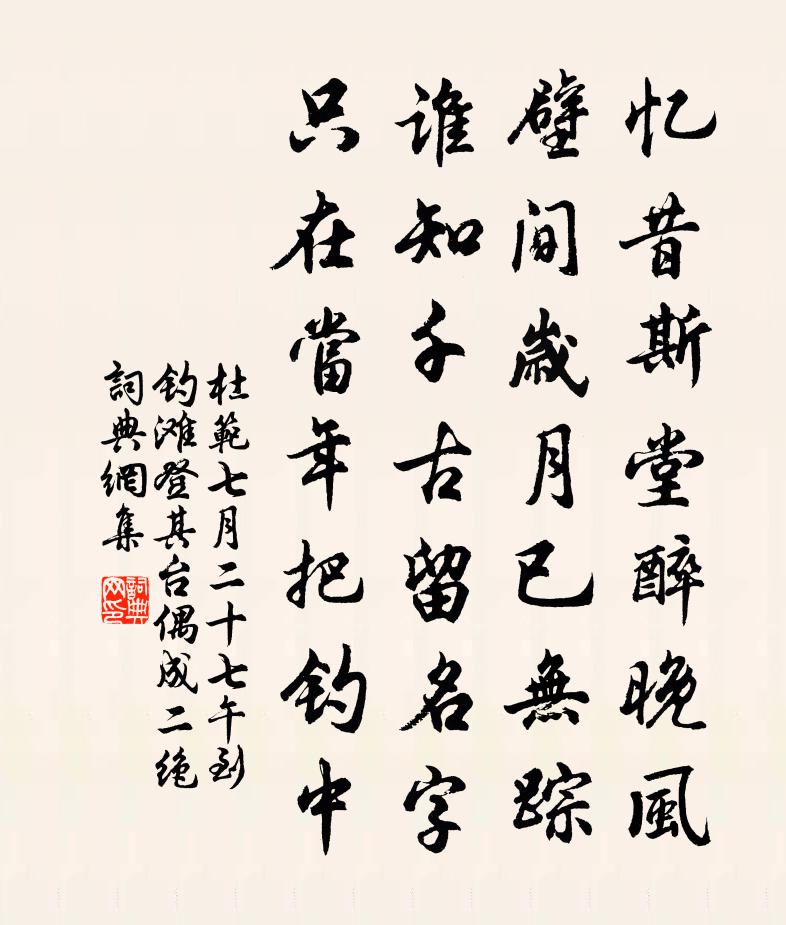 忆昔斯堂醉晚風
壁间歲月已無踪
誰知千古留名字
只在當年把钓中
杜範七月二十七午到
钓滩登其台偶成二绝
詞典網集
詞典网印